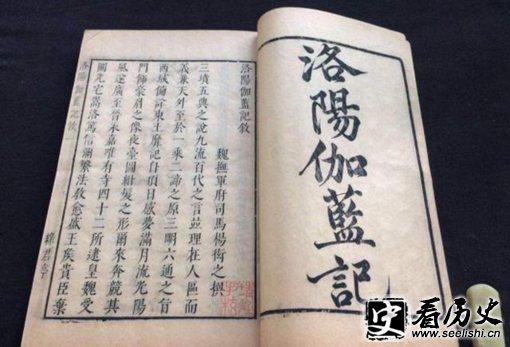 洛陽伽藍記
洛陽伽藍記敘
魏撫軍府司馬楊衒之撰
三墳五典之說九流百代之言並理在人區而
義兼天外至於一乘二諦之原三明六通之旨
西域備詳東土靡記自項日感夢滿月流光陽
門飾豪眉之像夜臺圖紺髮之形爾來奔競其
風遂廣至晉永嘉唯有寺四十二所逮皇魏受
圖光宅嵩洛篤信彌繁法教愈盛王矦貴臣棄
洛陽伽藍記敘
綠君亭
史 看历史
www.seelishi.cn